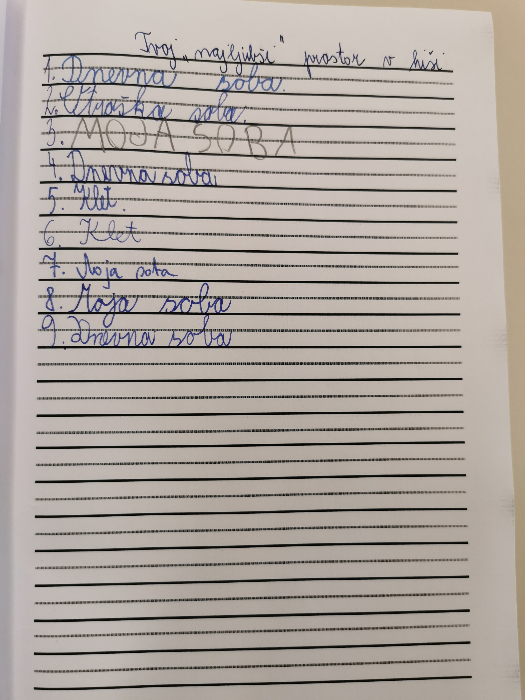 Tvoj „najljubši" prostor v hiši
1. Dnevna soba.
2. Otroška soba.
3. MOJA SOBA
4. Dnevna soba
5. Klet.
6. Klet
7. Moja soba
8. Moja soba
9. Dnevna soba